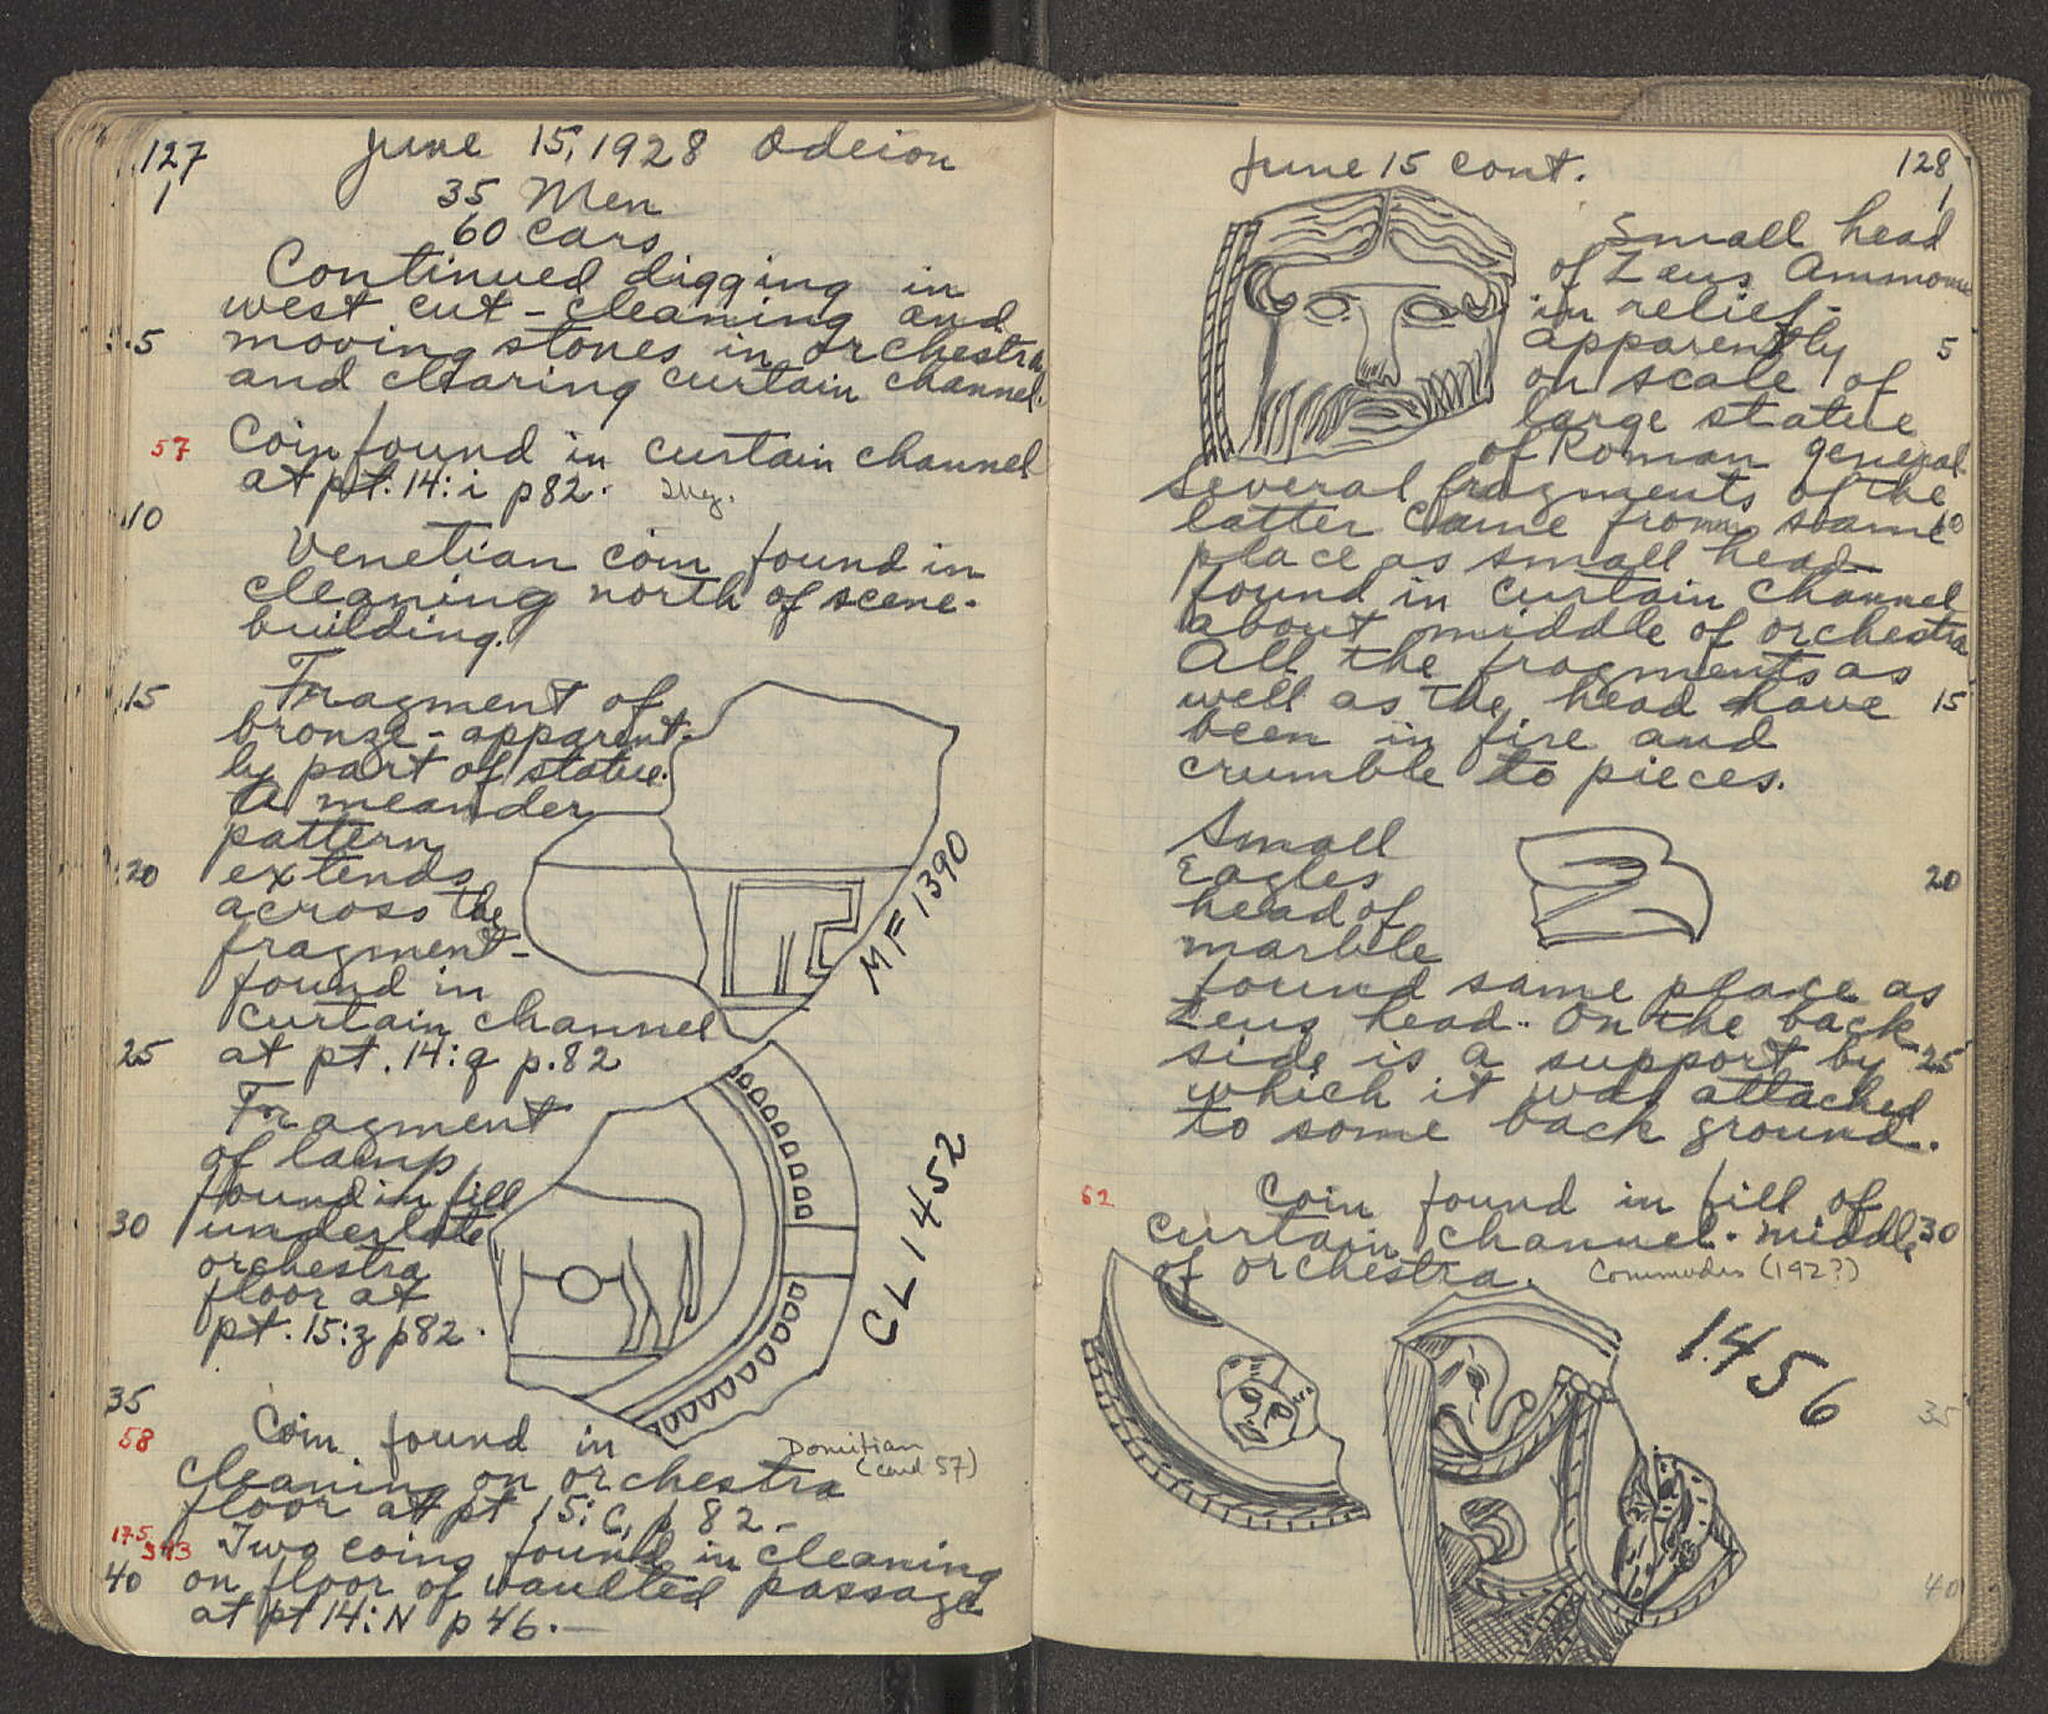 127
June 15, 1928 Odeion
1
35 Men
60 Cars
Continued digging in
west cut - cleaning and
5 moving stones in orchestra
and clearing curtain channel.
57 Coin found in curtain channel
at pt. 14:i p 82.
10
Venetian coin found in
cleaning north of scene-
building.
15 Fragment of
bronze - apparent-
ly part of statue.
A meander
pattern
20 extends
across the
fragment -
found in
curtain channel
25 at pt. 14:g p.82
MF 1390
Fragment
of lamp
found in fill
30 under late
orchestra
floor at
pt. 15:z p82.
CL 1452
35
58 Coin found in
Domitian
(card 57)
cleaning on orchestra
floor at pt 15:C, p 82. -
175 Two coins found in cleaning
40 on floor of vaulted passage
at pt 14:N p 46. -
June 15 cont.
128
1
Small head
of Zeus Ammon
in relief -
apparently 5
on scale of
large statue
of Roman general
Several fragments of the
latter came from same 10
place as small head
found in curtain channel
about middle of orchestra
All the fragments as
well as the head have 15
been in fire and
crumble to pieces.
Small
Eagles 20
head of
marble
found same place as
Zeus head. On the back
side is a support by 25
which it was attached
to some back ground.
62 Coin found in fill of
curtain channel. middle 30
of orchestra. Commodus (192?)
1456
35
40